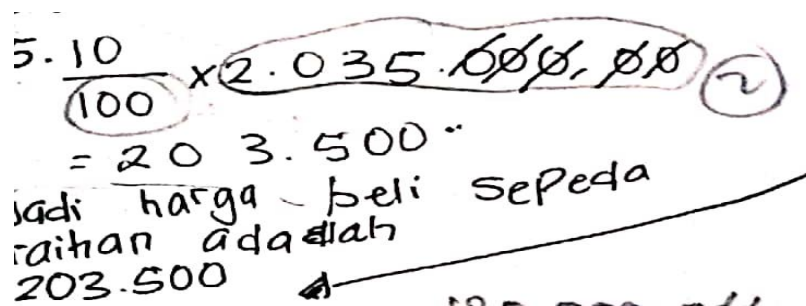 5. 10/100 × 2.035.000,00 2
= 203.500
Jadi harga beli sepeda
raihan adalah
203.500